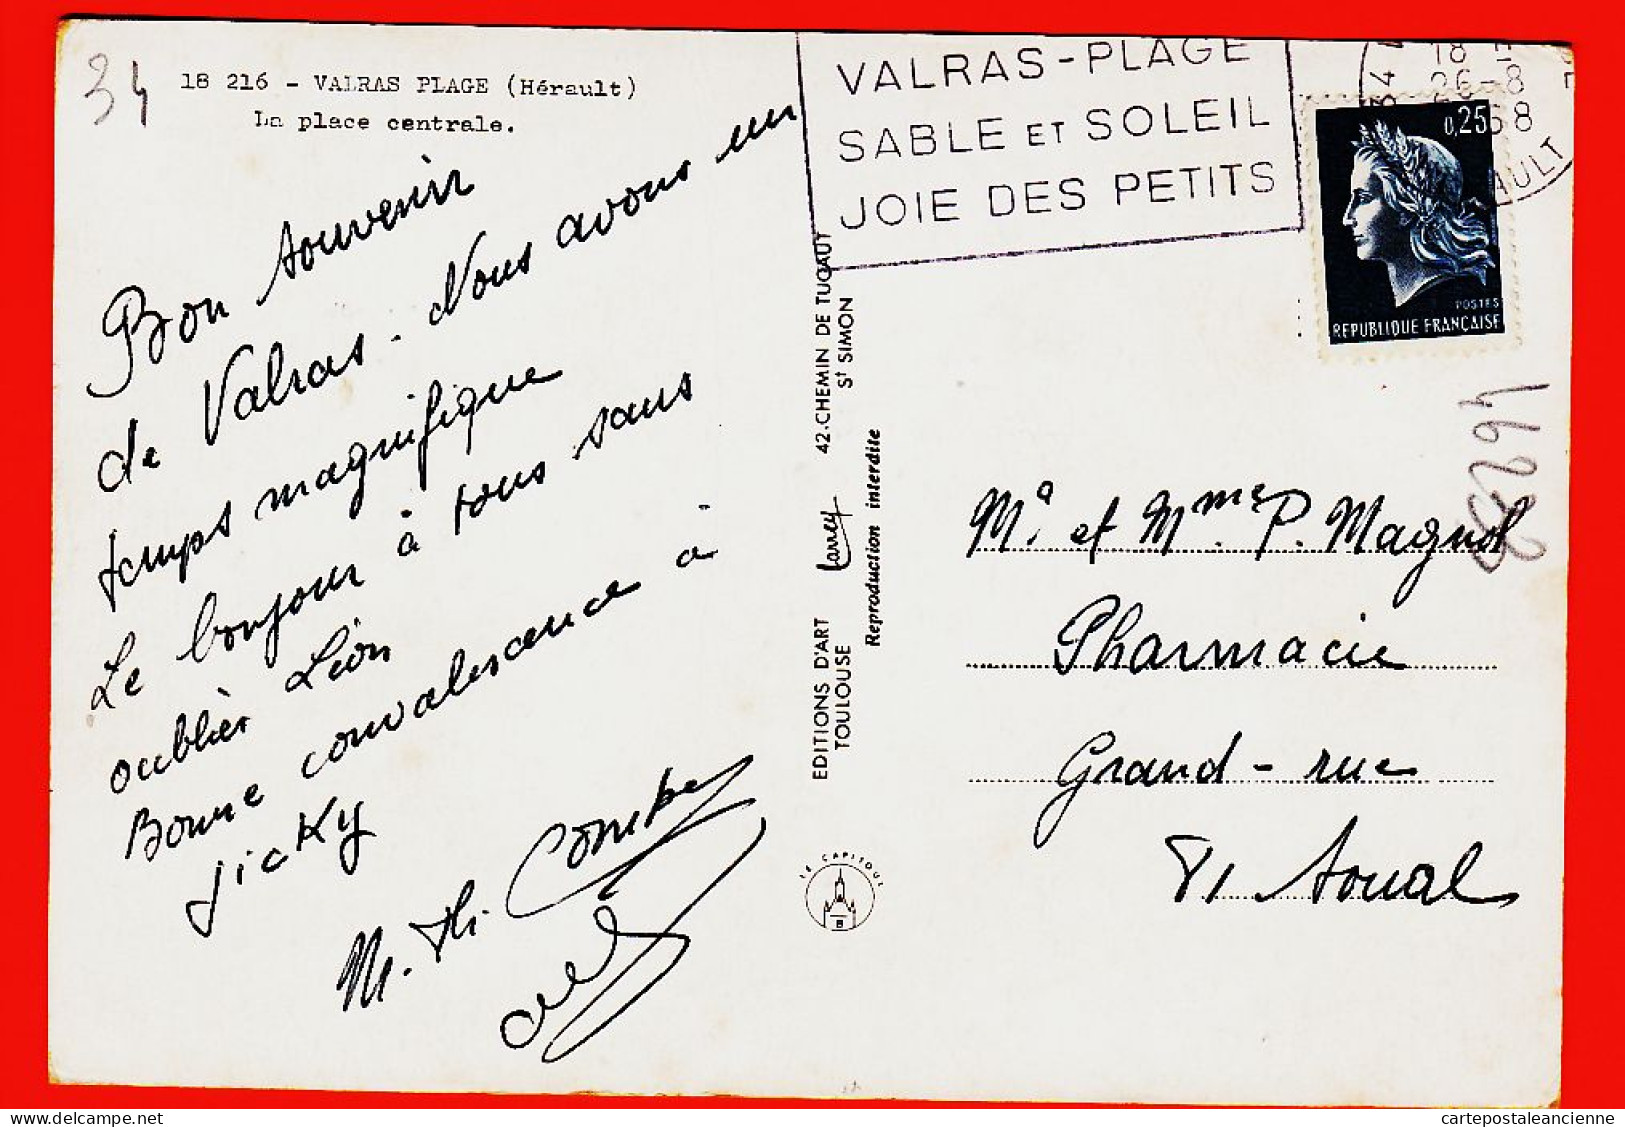 34
18 216 - VALRAS PLAGE (Hérault)
La place centrale.
Bon souvenir
de Valras. Nous avons un
temps magnifique
Le bonjour à tous sans
oublier Léon
Bonne convalescence à
Jicky
M. Th. Combes
VALRAS-PLAGE
SABLE ET SOLEIL
JOIE DES PETITS
34
18
26-8
68
AULT
0,25
POSTES
REPUBLIQUE FRANÇAISE
EDITIONS D'ART Larrey 42. CHEMIN DE TUCAUT
TOULOUSE St SIMON
Reproduction interdite
LE CAPITOUL
Mr. et Mme. P. Magnol
Pharmacie
Grand-rue
81 Soual
delcampe.net
cartepostaleancienne